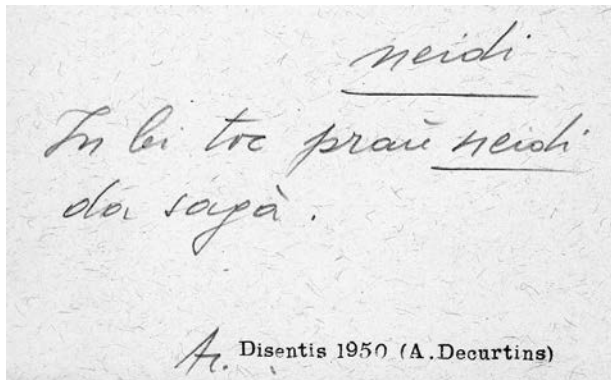 neidi
In bi toc praū neidi
da sagà.
A. Disentis 1950 (A. Decurtins)